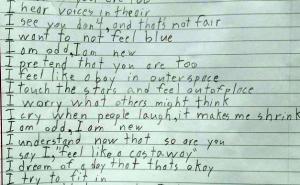 you are too
I hear voices in the air
I see you don't, and thats not fair
I want to not feel blue
I am odd, I am new
I pretend that you are too
I feel like a boy in outerspace
I touch the stars and feel out of place
I worry what others might think
I cry when people laugh, it makes me shrink
I am odd, I am new
I understand now that so are you
I say I, "feel like a castaway"
I dream of a day that thats okay
I try to fit in